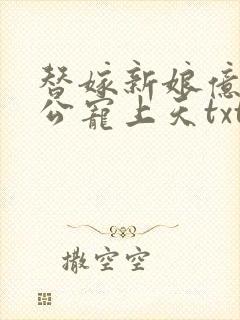 替嫁新娘亿
公宠上天txt
撒空空